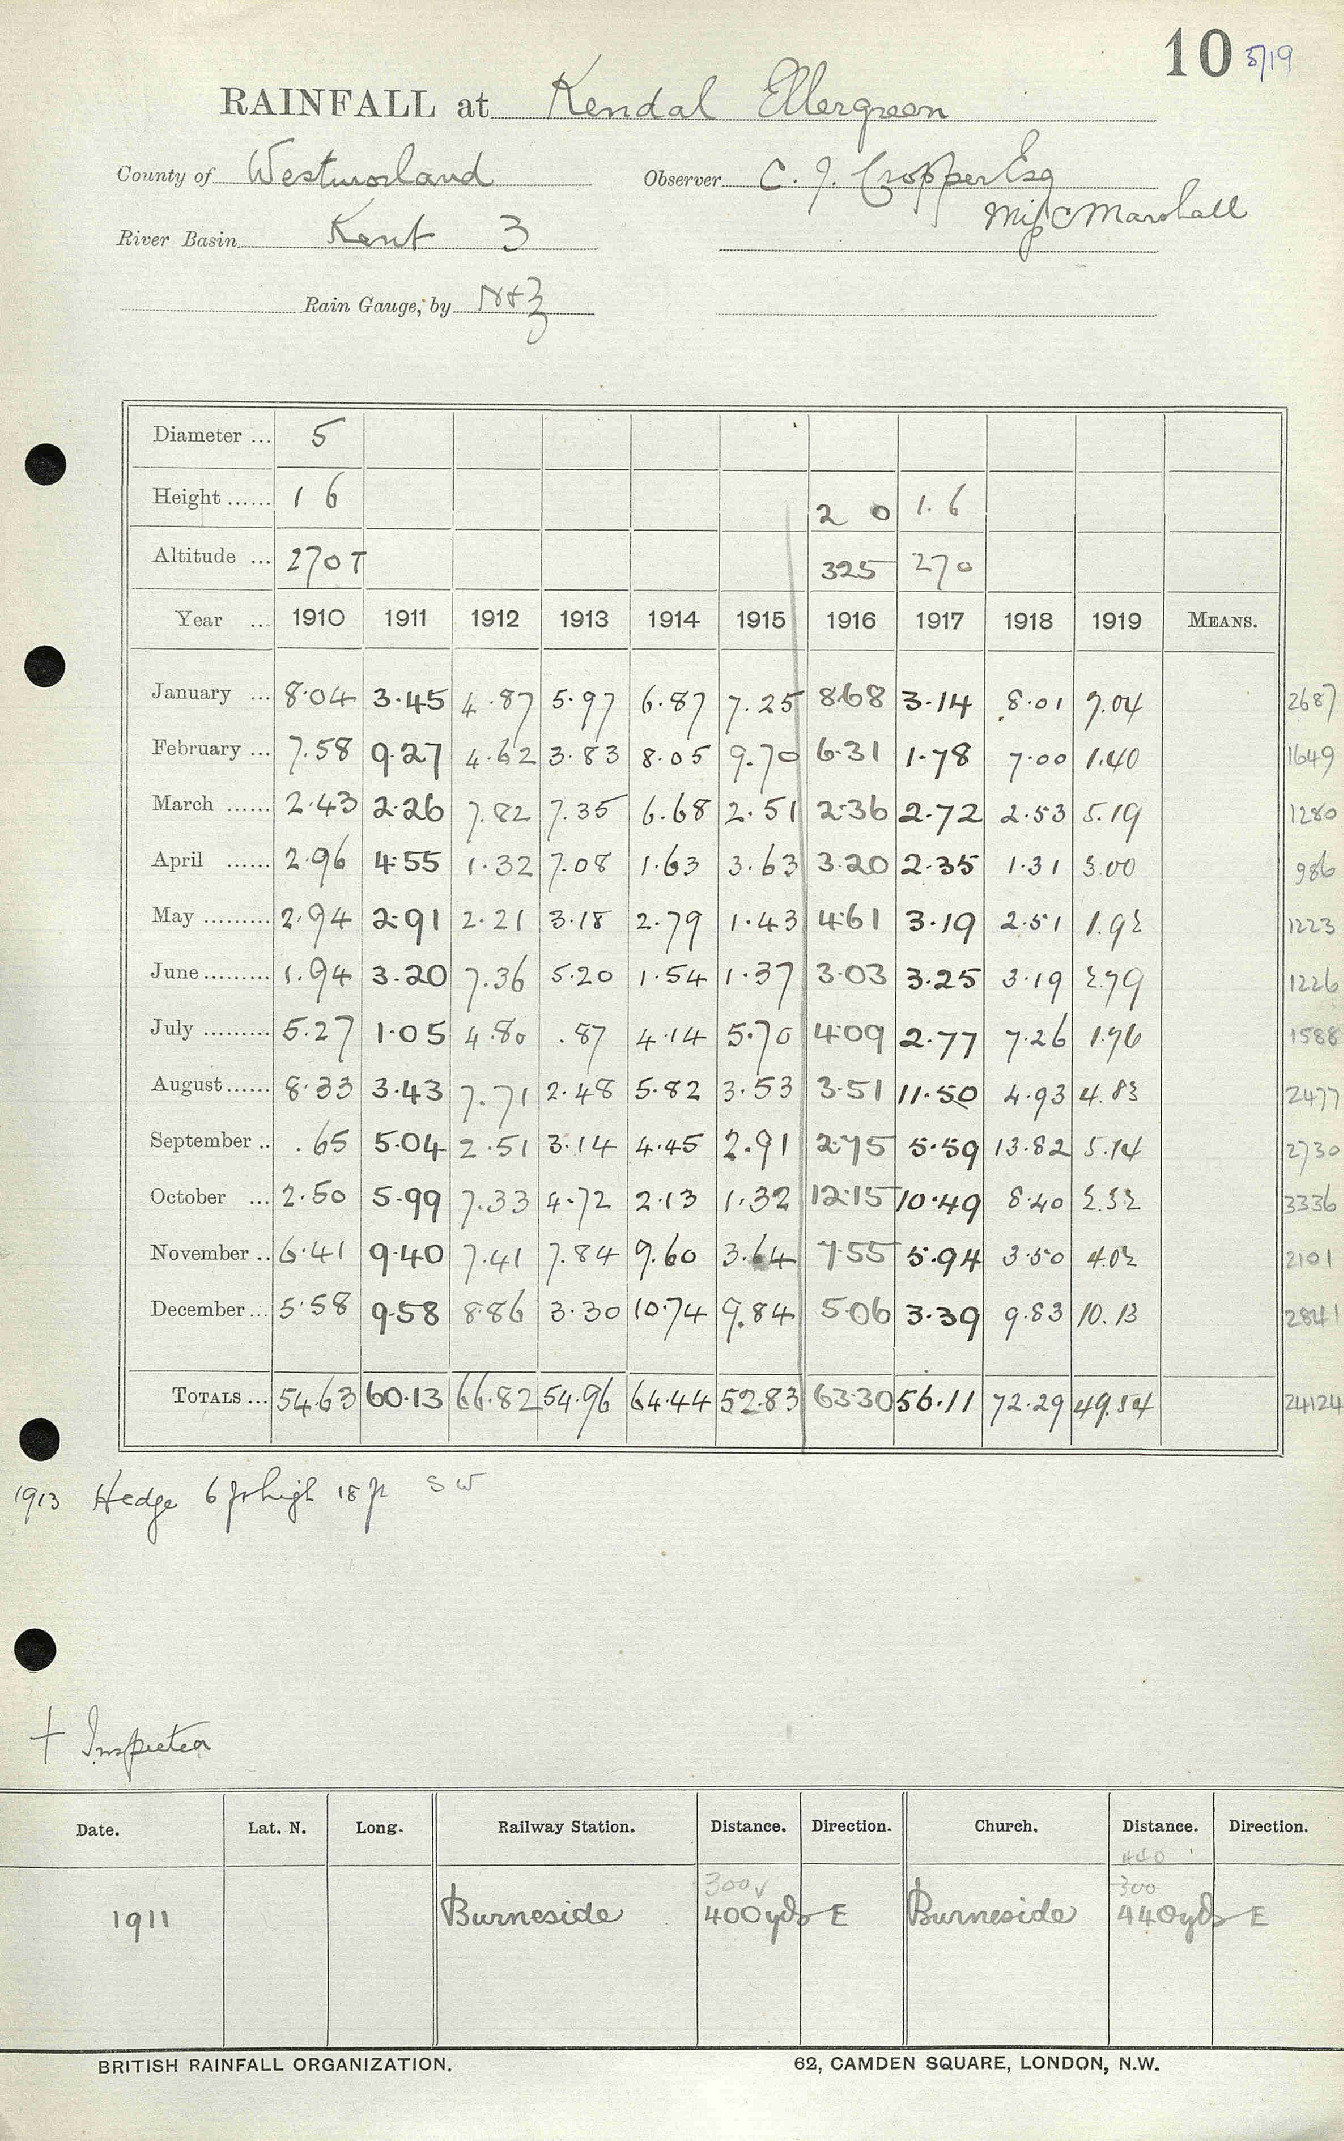 10 5/19
RAINFALL at Kendal Ellergreen
County of Westmorland Observer C. J. Cropper Esq
Miss C Marshall
River Basin Kent 3
Rain Gauge, by N+Z
Diameter ... 5
Height ...... 1 6 2 0 1.6
Altitude ... 270 T 325 270
Year ... 1910 1911 1912 1913 1914 1915 1916 1917 1918 1919 MEANS.
January ... 8.04 3.45 4.87 5.97 6.87 7.25 8.68 3.14 8.01 7.04 2687
February ... 7.58 9.27 4.62 3.83 8.05 9.70 6.31 1.78 7.00 1.40 1649
March ...... 2.43 2.26 7.82 7.35 6.68 2.51 2.36 2.72 2.53 5.19 1280
April ...... 2.96 4.55 1.32 7.08 1.63 3.63 3.20 2.35 1.31 3.00 986
May ......... 2.94 2.91 2.21 3.18 2.79 1.43 4.61 3.19 2.51 1.92 1223
June ......... 1.94 3.20 7.36 5.20 1.54 1.37 3.03 3.25 3.19 2.79 1226
July ......... 5.27 1.05 4.80 .87 4.14 5.70 4.09 2.77 7.26 1.76 1588
August ...... 8.33 3.43 7.71 2.48 5.82 3.53 3.51 11.50 4.93 4.83 2477
September .. .65 5.04 2.51 3.14 4.45 2.91 2.75 5.59 13.82 5.14 2730
October ... 2.50 5.99 7.33 4.72 2.13 1.32 12.15 10.49 8.40 2.32 3336
November .. 6.41 9.40 7.41 7.84 9.60 3.64 7.55 5.94 3.50 4.02 2101
December ... 5.58 9.58 8.86 3.30 10.74 9.84 5.06 3.39 9.83 10.13 2841
TOTALS ... 54.63 60.13 66.82 54.96 64.44 52.83 63.30 56.11 72.29 49.54 24124
1913 Hedge 6 ft high 18 ft SW
+ Inspected
Date. Lat. N. Long. Railway Station. Distance. Direction. Church. Distance. Direction.
440
300 300
1911 Burneside 400 yds E Burneside 440 yds E
BRITISH RAINFALL ORGANIZATION. 62, CAMDEN SQUARE, LONDON, N.W.